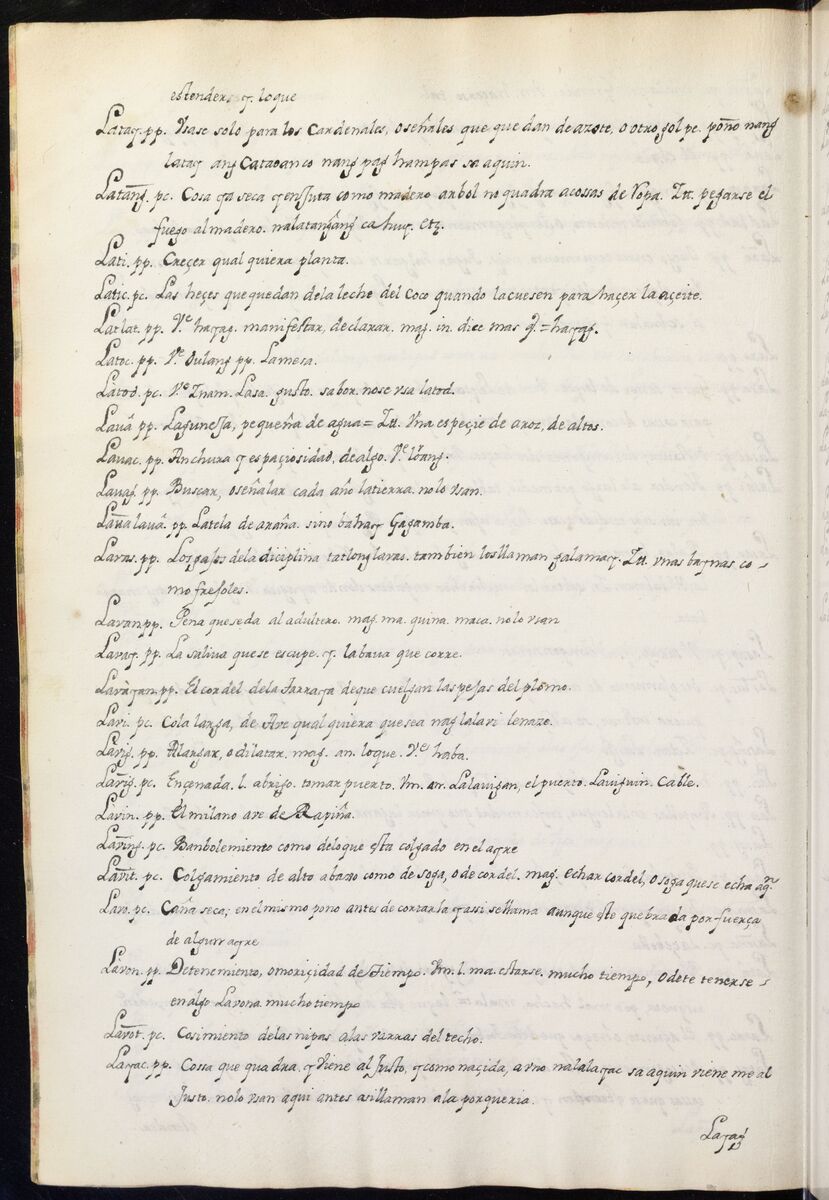 estenders, y. loque
Latay. pp. Vsase solo para los Cardenales, o señales que que dan de azote, o otro gol pe. poño nang
latay ang Cataoan co nang pag hampas sa aquin.
Latang. pc. Cosa ya seca y enjuta como madero arbol no quadra acossas de Ropa. Itt. pegarse el
fuego al madero. nalatangang ca huy. etz.
Lati. pp. Creçer qual quiera planta.
Latic. pc. Las heçes que quedan dela leche del Coco quando la cuesen para haçer la açeite.
Latlat. pp. Ve hayag. manifestar, declarar. mag. in. dice mas q.=hayag.
Latoc. pp. Ve Dulang pp. Lamesa.
Latod. pc. Ve Inam. Lasa. gusto. sabor. nose vsa latod.
Lauā pp. Lagunessa, pequeña de agua= Itt. vna espeçie de aroz, de altos.
Lauac. pp. Anchura y espaçiosidad, de algo. Ve loang.
Lauag. pp. Buscar, o señalar cada año latierra. nolo vsan.
Lauālauā. pp. Latela de araña. sino bahay Gagamba.
Lavas. pp. Los gajos dela diciplina tatlong lavas. tambien los llaman galamay. Itt. vnas baynas co-
mo fresoles.
Lavan pp. Pena que se da al adultero. mag. ma. quina. maca. nolo vsan
Lavay. pp. La saliva que se escupe. y. la bava que corre.
Lavayan. pp. El cordel dela tarraya de que cuelgan las pesas del plomo.
Lavi. pc. Cola larga, de Ave qual quiera que sea naglalavi lenaze.
Lavig. pp. Alargar, o dilatar. mag. an. loque. Ve haba.
Lavig. pc. Ençenada. l. abrigo. tomar puerto. vm. an. Lalavigan, el puerto. Laviguin. Cable.
Lavin. pp. El milano ave de Rapiña.
Laving. pc. Banbolemiento como deloque esta colgado en el ayre
Lavit. pc. Colgamiento de alto abaxo como de soga, o de cordel. mag. echar cordel, o soga que se echa aq.
Lavo. pc. Caña seca; en el mismo pono antes de cortarla y assi se llama aunque este quebrada por fuerça
de algun ayre
Lavon. pp. Detenemiento, o moriçidad de tiempo. vm. l. ma. estarse. mucho tiempo, o dete tenerse
en algo Lavona. mucho tiempo
Lavot. pc. Cosimiento delas nipas alas varras del techo.
Layac. pp. Cossa que quadra, y viene al Justo, y como naçida, a vno nalalayac sa aquin viene me al
Justo. nolo vsan aqui antes asi llaman ala porqueria.
Layag